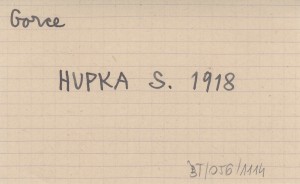 Gorce
HUPKA S. 1918
BT/056/1114